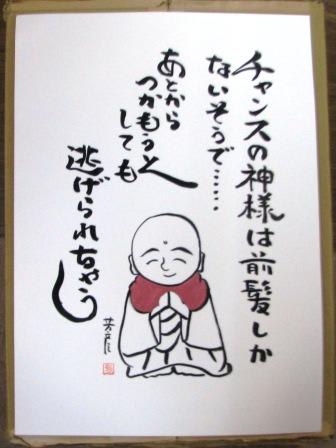 チャンスの神様は前髪しか
ないそうで……
あとから
つかもうと
しても
逃げられちゃう